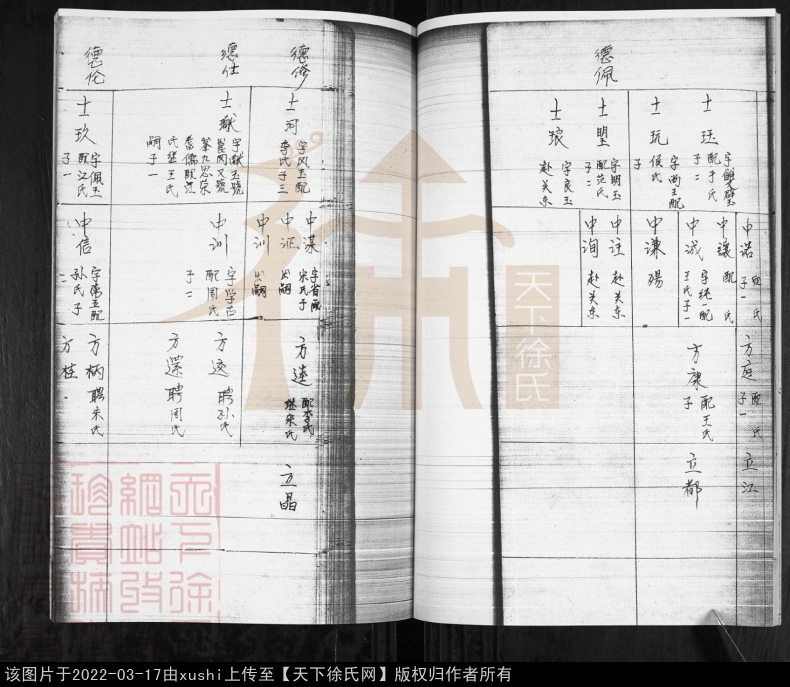 德佩
士珏
字雙璧
配于氏
子二
士玩
字尚玉配
侯氏
子
士塱
字明玉
配范氏
子二
士琅
字良玉
赴关东
中诺
配 氏
子一
中让
配 氏
中诚
字纯一配
王氏子一
中谦
殇
中注
赴关东
中询
赴关东
方庭
配 氏
子一
方康
配王氏
子
立江
立都
德修
士珂
字风玉配
李氏子三
中谋
字省配
宋氏子
中证
出嗣
中训
出嗣
方逵
配李氏
继宋氏
立晶
德仕
士献
氏继王氏
嗣子一
中训
字学
配周氏
子二
方
聘孙氏
方
聘周氏
德伦
士玖
字佩玉
配江氏
子一
中信
孙氏子
二
方柄
聘宋氏
方桂
天下徐氏
该图片于2022-03-17由xushi上传至【天下徐氏网】版权归作者所有